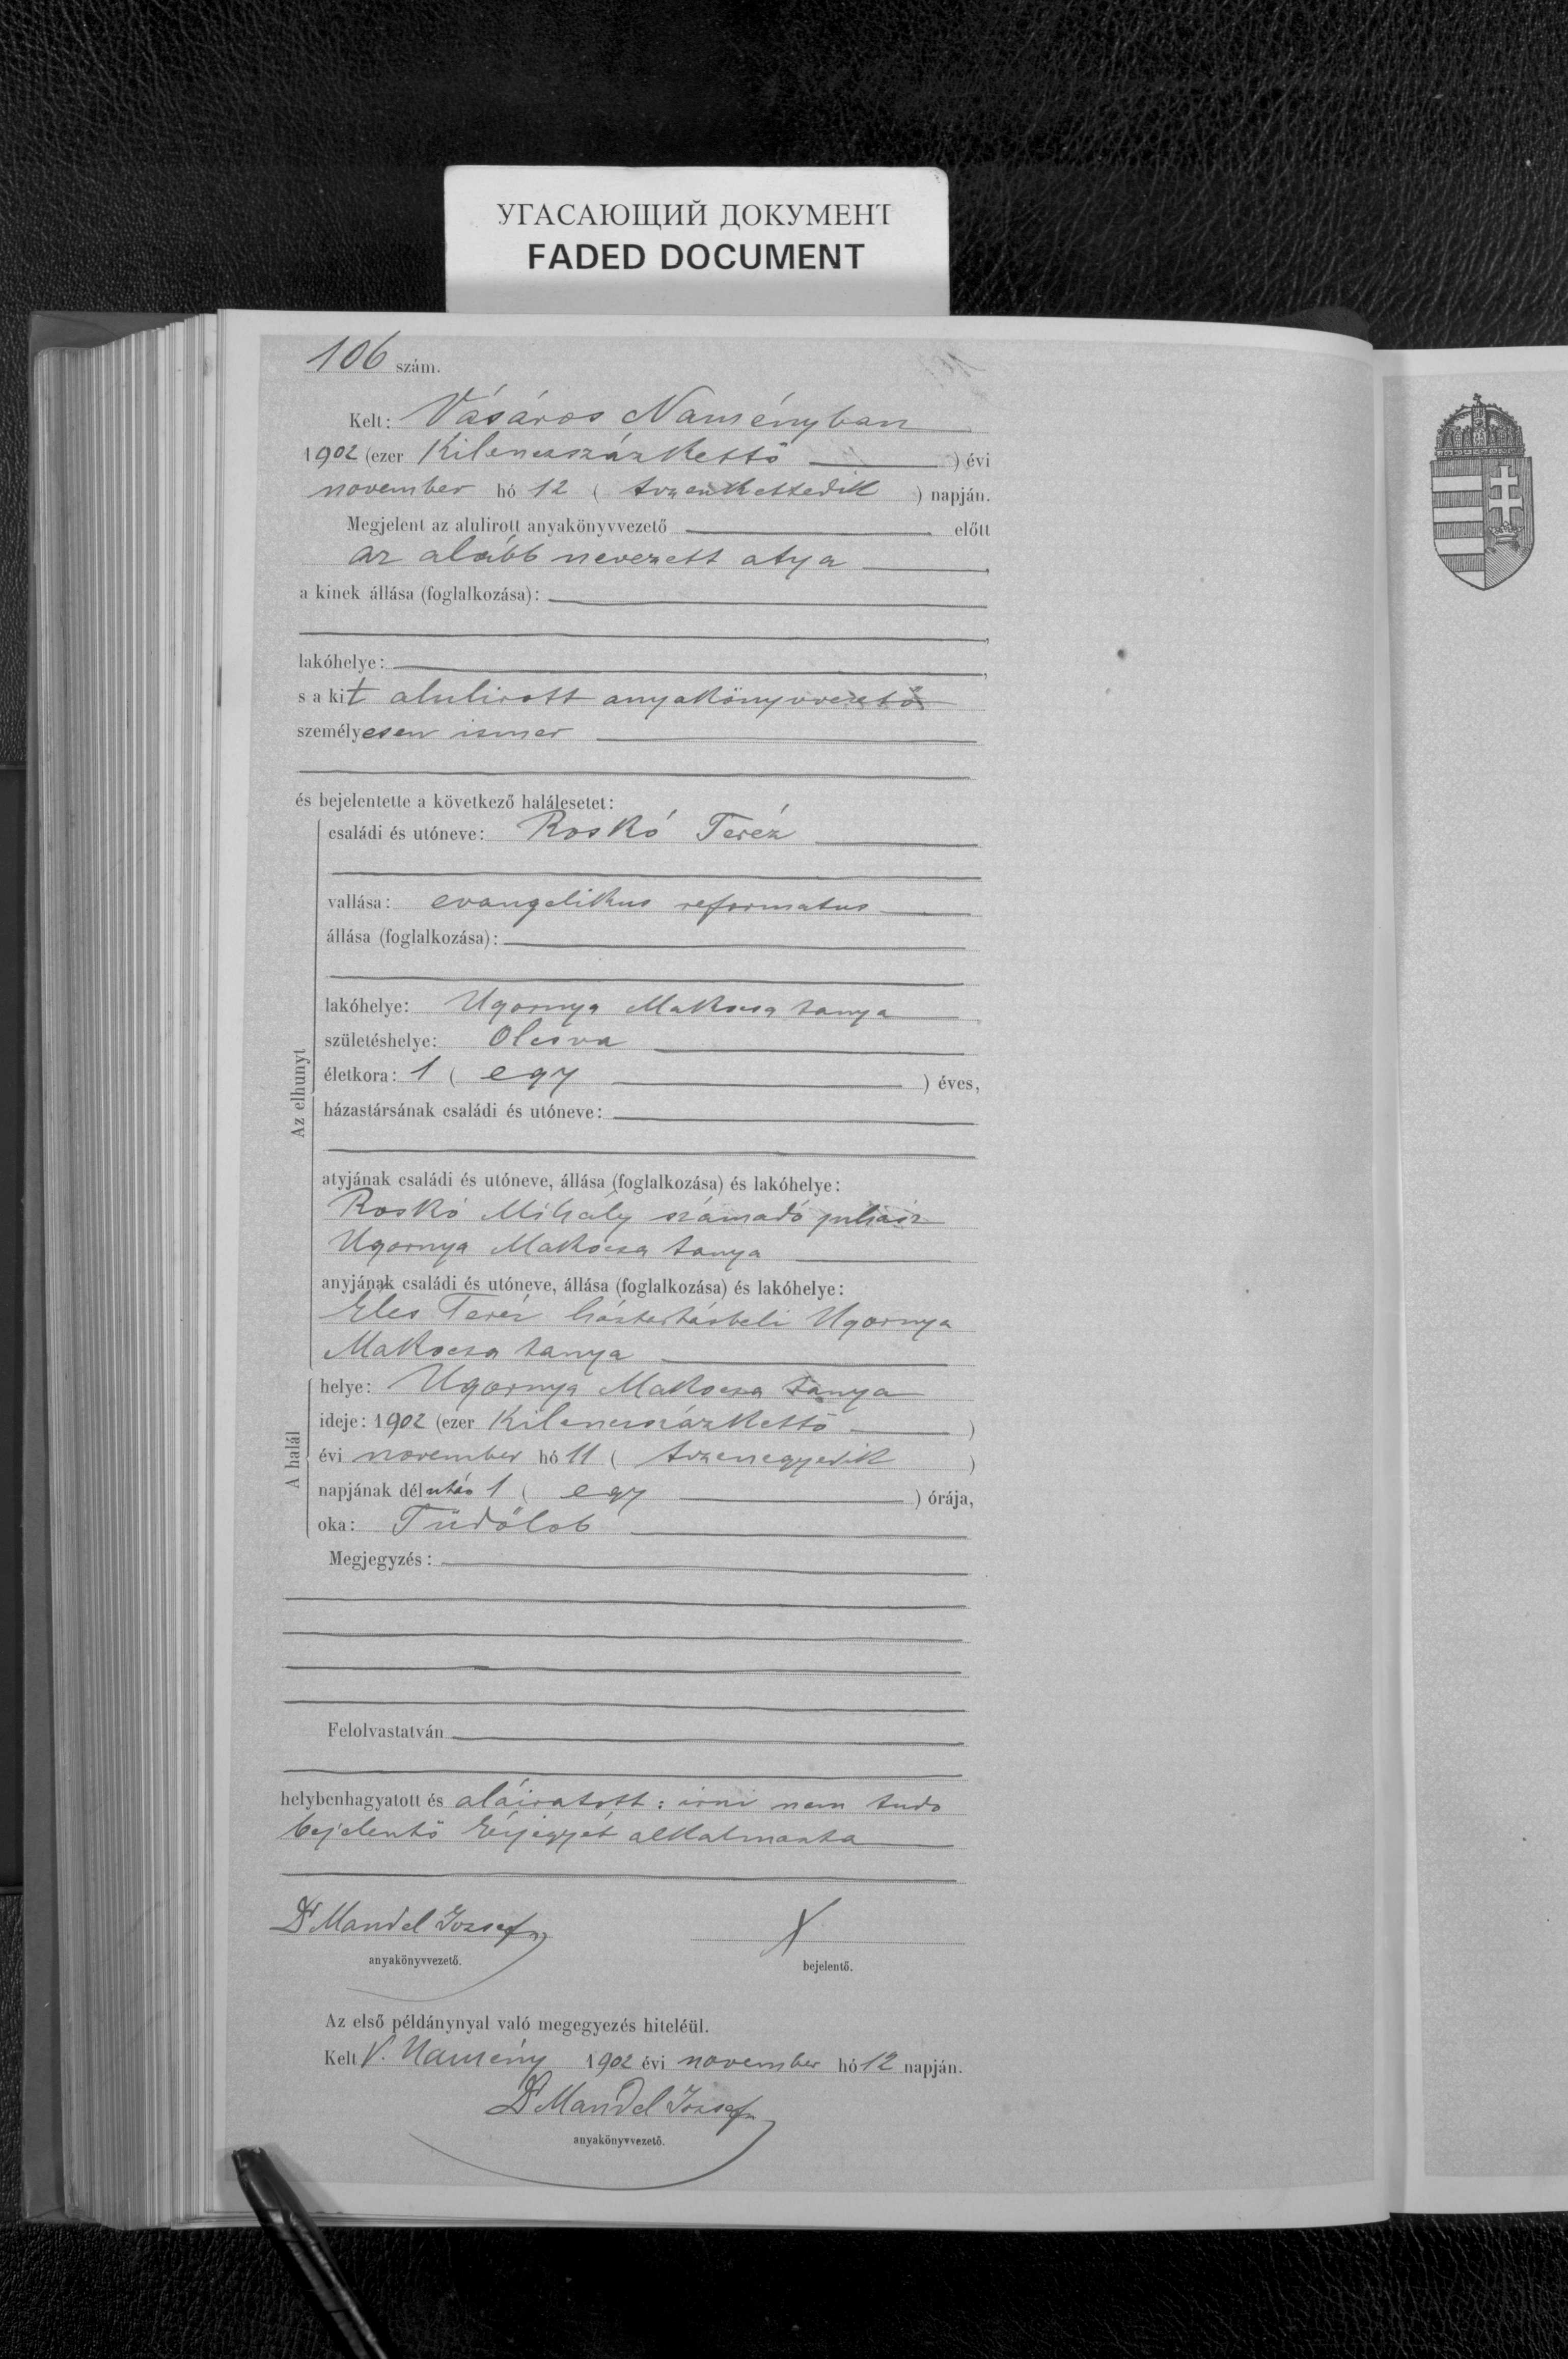 УГАСАЮЩИЙ ДОКУМЕНТ
FADED DOCUMENT
106 szám.
Kelt: Vásáros Naményban
1902 (ezer kilenczszázkettő ) évi
november hó 12 ( tizenkettedik ) napján.
Megjelent az alulirott anyakönyvvezető előtt
az alább nevezett atya ,
a kinek állása (foglalkozása):
,
lakóhelye: ,
s a kit alulirott anyakönyvvezető
személyesen ismer
és bejelentette a következő halálesetet:
Az elhunyt
családi és utóneve: Roskó Teréz
vallása: evangelikus reformatus
állása (foglalkozása):
lakóhelye: Ugornya Makocsa tanya
születéshelye: Olcsva
életkora: 1 ( egy ) éves,
házastársának családi és utóneve:
atyjának családi és utóneve, állása (foglalkozása) és lakóhelye:
Roskó Mihály számadó juhász
Ugornya Makocsa tanya
anyjának családi és utóneve, állása (foglalkozása) és lakóhelye:
Eles Teréz háztartásbeli Ugornya
Makocsa tanya
A halál
helye: Ugornya Makocsa tanya
ideje: 1902 (ezer kilenczszázkettő )
évi november hó 11 ( tizenegyedik )
napjának délután 1 ( egy ) órája,
oka: Tüdőlob
Megjegyzés:
Felolvastatván
helybenhagyatott és aláiratott: irni nem tudo
bejelentő kézjegyét alkalmazta
Dr Mandel Jozsef X
anyakönyvvezető. bejelentő.
Az első példánynyal való megegyezés hiteléül.
Kelt V. Namény 1902 évi november hó 12 napján.
Dr Mandel Jozsef
anyakönyvvezető.